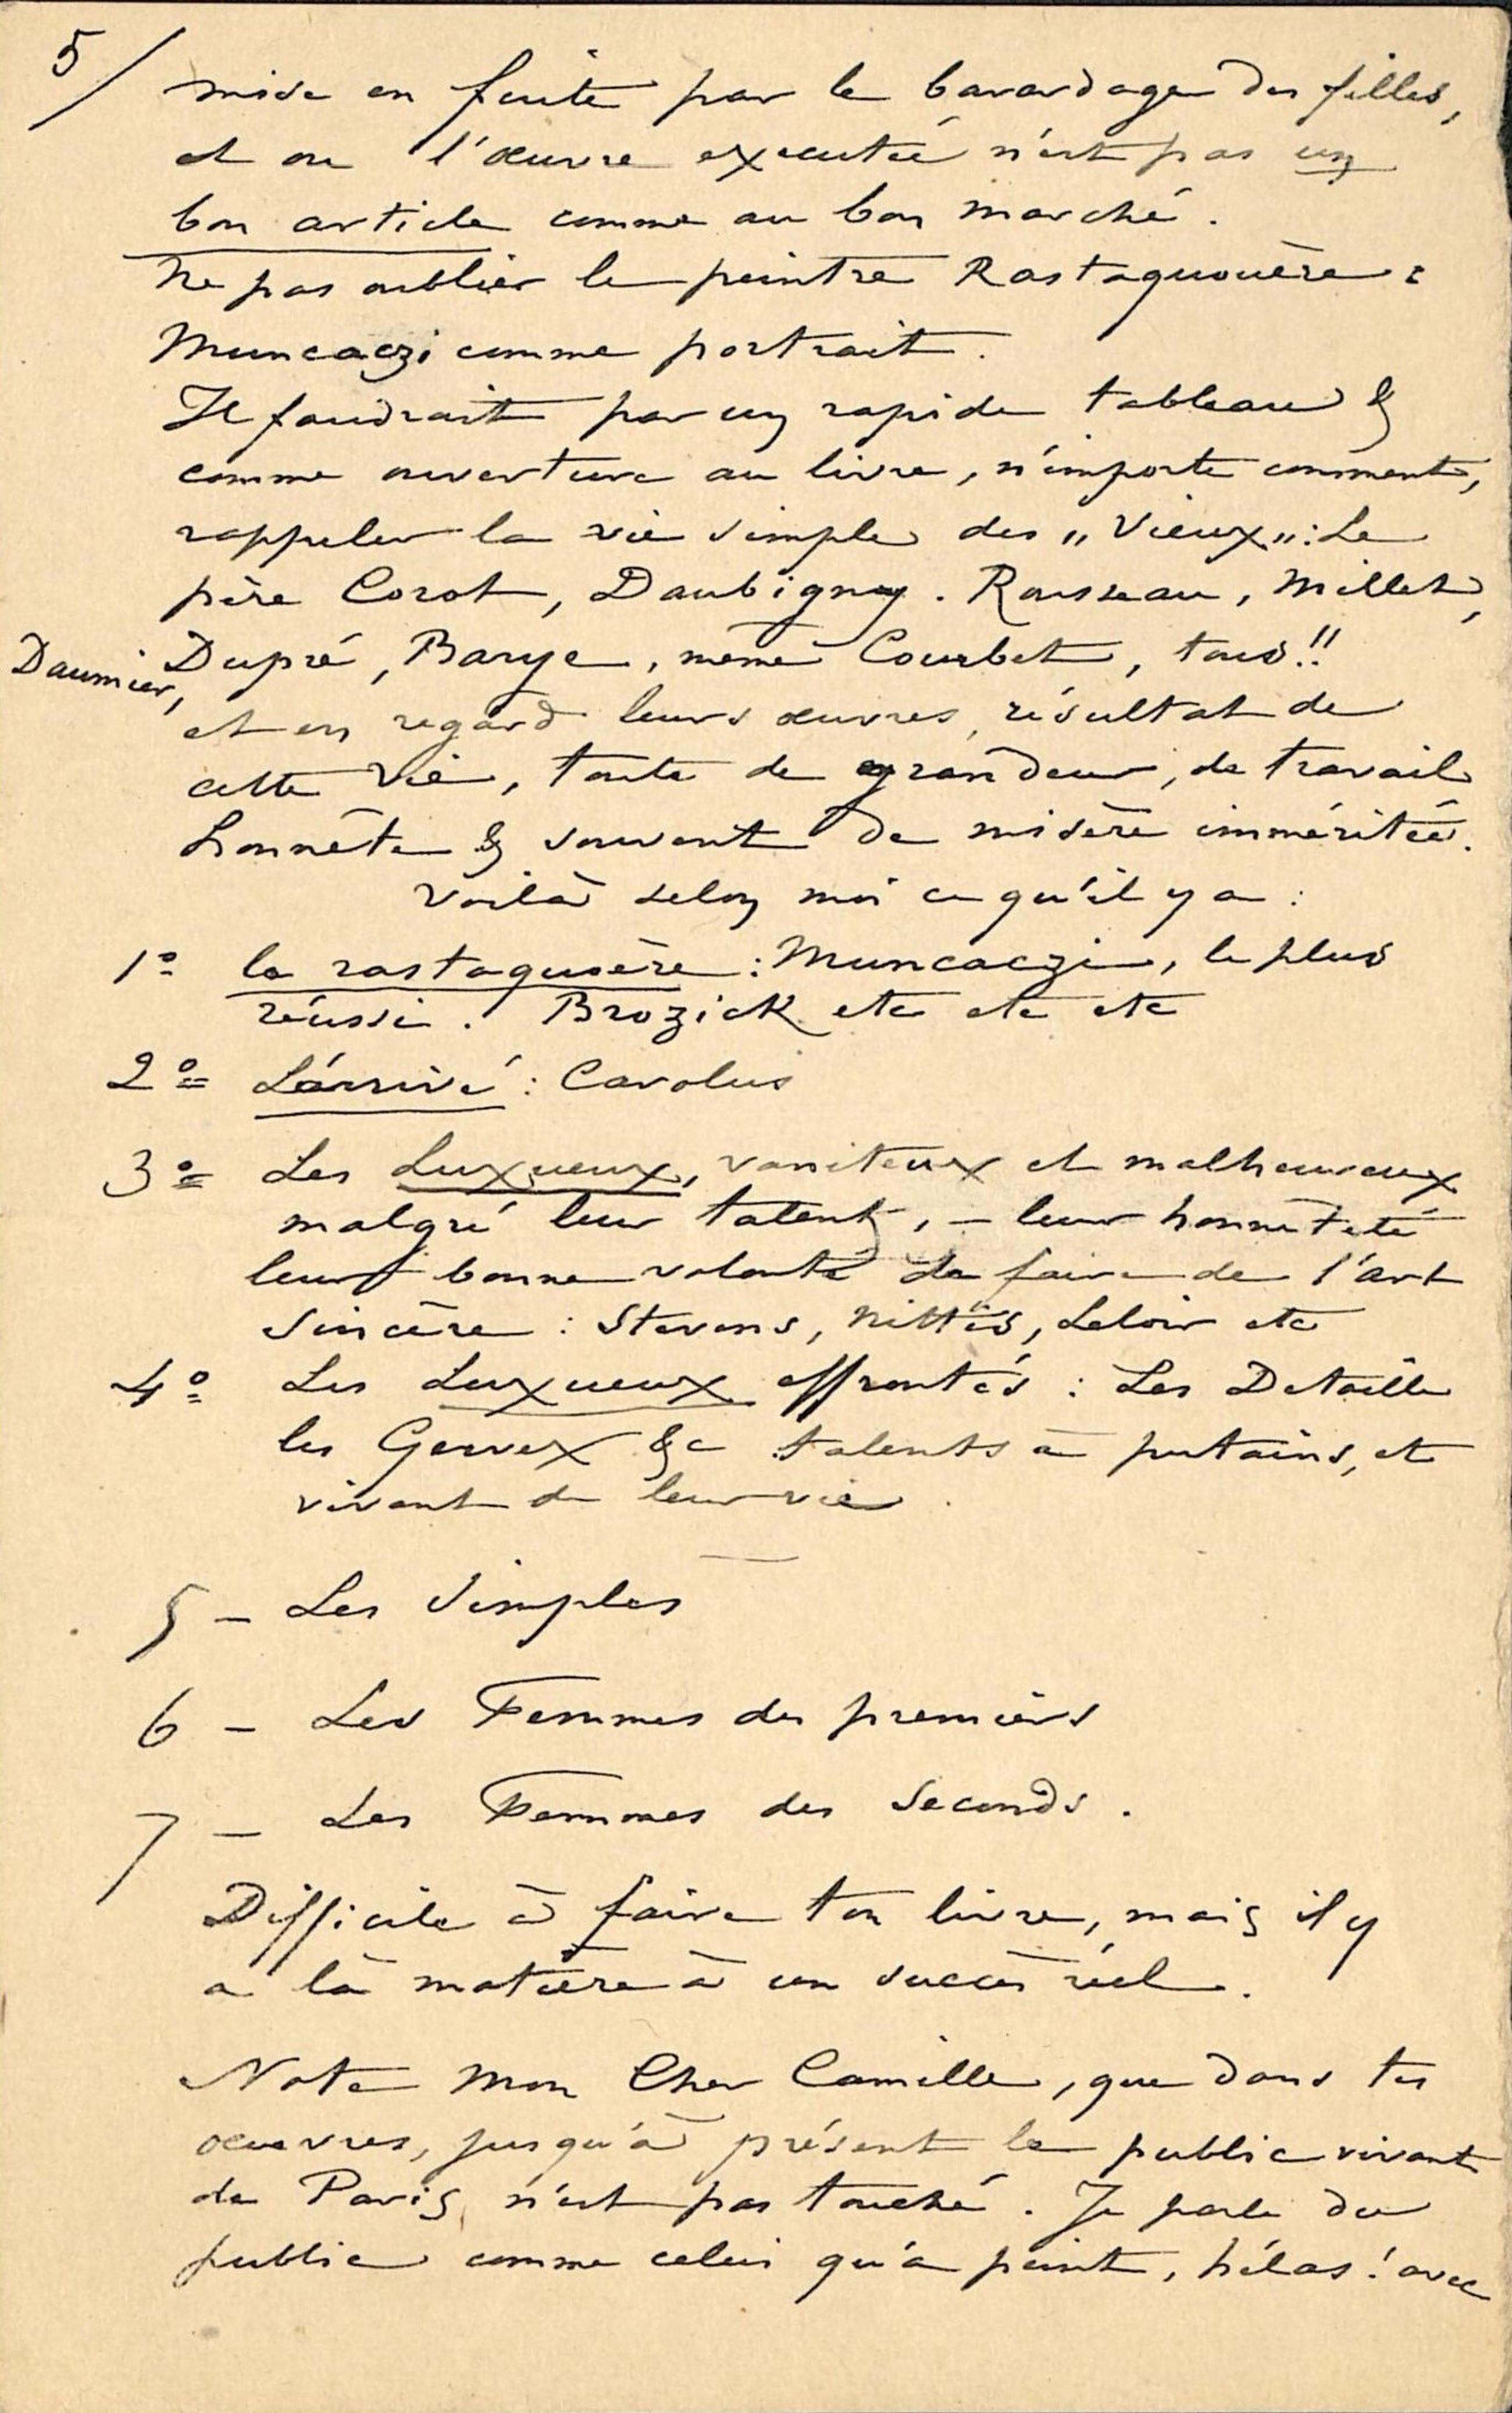 5/
mise en fuite par le bavardage des filles,
et ou l'œuvre executée n'est pas un
bon article comme au bon marché.
Ne pas oublier le peintre Rastaquouère :
Muncaczi comme portrait.
Il faudrait par un rapide tableau &
comme ouverture au livre, n'importe comment,
rappeler la vie simple des „Vieux„ : Le
père Corot, Daubigny. Rousseau, Millet,
Daumier, Dupré, Barye, même Courbet, tous!!
et en regard leurs œuvres, résultat de
cette vie, toute de grandeur, de travail
honnête & souvent de misère imméritée.
Voilà selon moi ce qu'il y a :
1º le rastaquoère : Muncaczi, le plus
réussi. Brozick etc etc etc
2º L'arrivé : Carolus
3º Les Luxueux, vaniteux et malheureux
malgré leur talent, – leur honnêteté
leur bonne volonté de faire de l'art
sincère : Stevens, Nittis, Leloir etc
4º Les Luxueux effrontés : Les Detaille
les Gervex &c talents à putains, et
vivant de leur vie.
5 – Les Simples
6 – Les Femmes des premiers
7 – Les Femmes des Seconds.
Difficile à faire ton livre, mais il y
a là matière à un succès réel.
Note mon Cher Camille, que dans tes
œuvres, jusqu'à présent le public vivant
de Paris n'est pas touché. Je parle du
public comme celui qu'a peint, hélas! avec